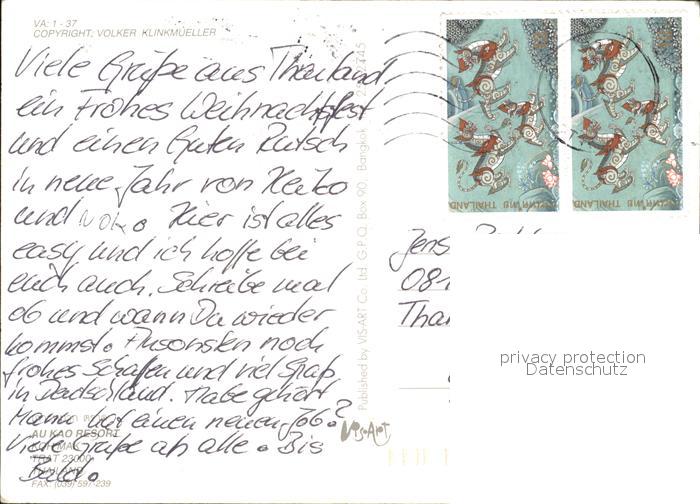 VA: 1 - 37
COPYRIGHT: VOLKER KLINKMÜELLER
Viele Grüße aus Thailand
ein Frohes Weihnachtsfest
und einen Guten Rutsch
in neue Jahr von Heiko
und Noi. Hier ist alles
easy und ich hoffe bei
euch auch. Schreibe mal
ob und wann Du wieder
kommst. Ansonsten noch
frohes Schaffen und viel Spaß
in Deutschland. Habe gehört
Mann hat einen neuen Job?
Viele Grüße an alle. Bis
Bald.
AU KAO RESORT
TRAT 23000
THAILAND
FAX: (039) 597-239
Published by VIS-ART Co. Ltd. G.P.O. Box 90, Bangkok
VIS-ART
THAILAND
THAILAND
Jens
081
Tha
privacy protection
Datenschutz